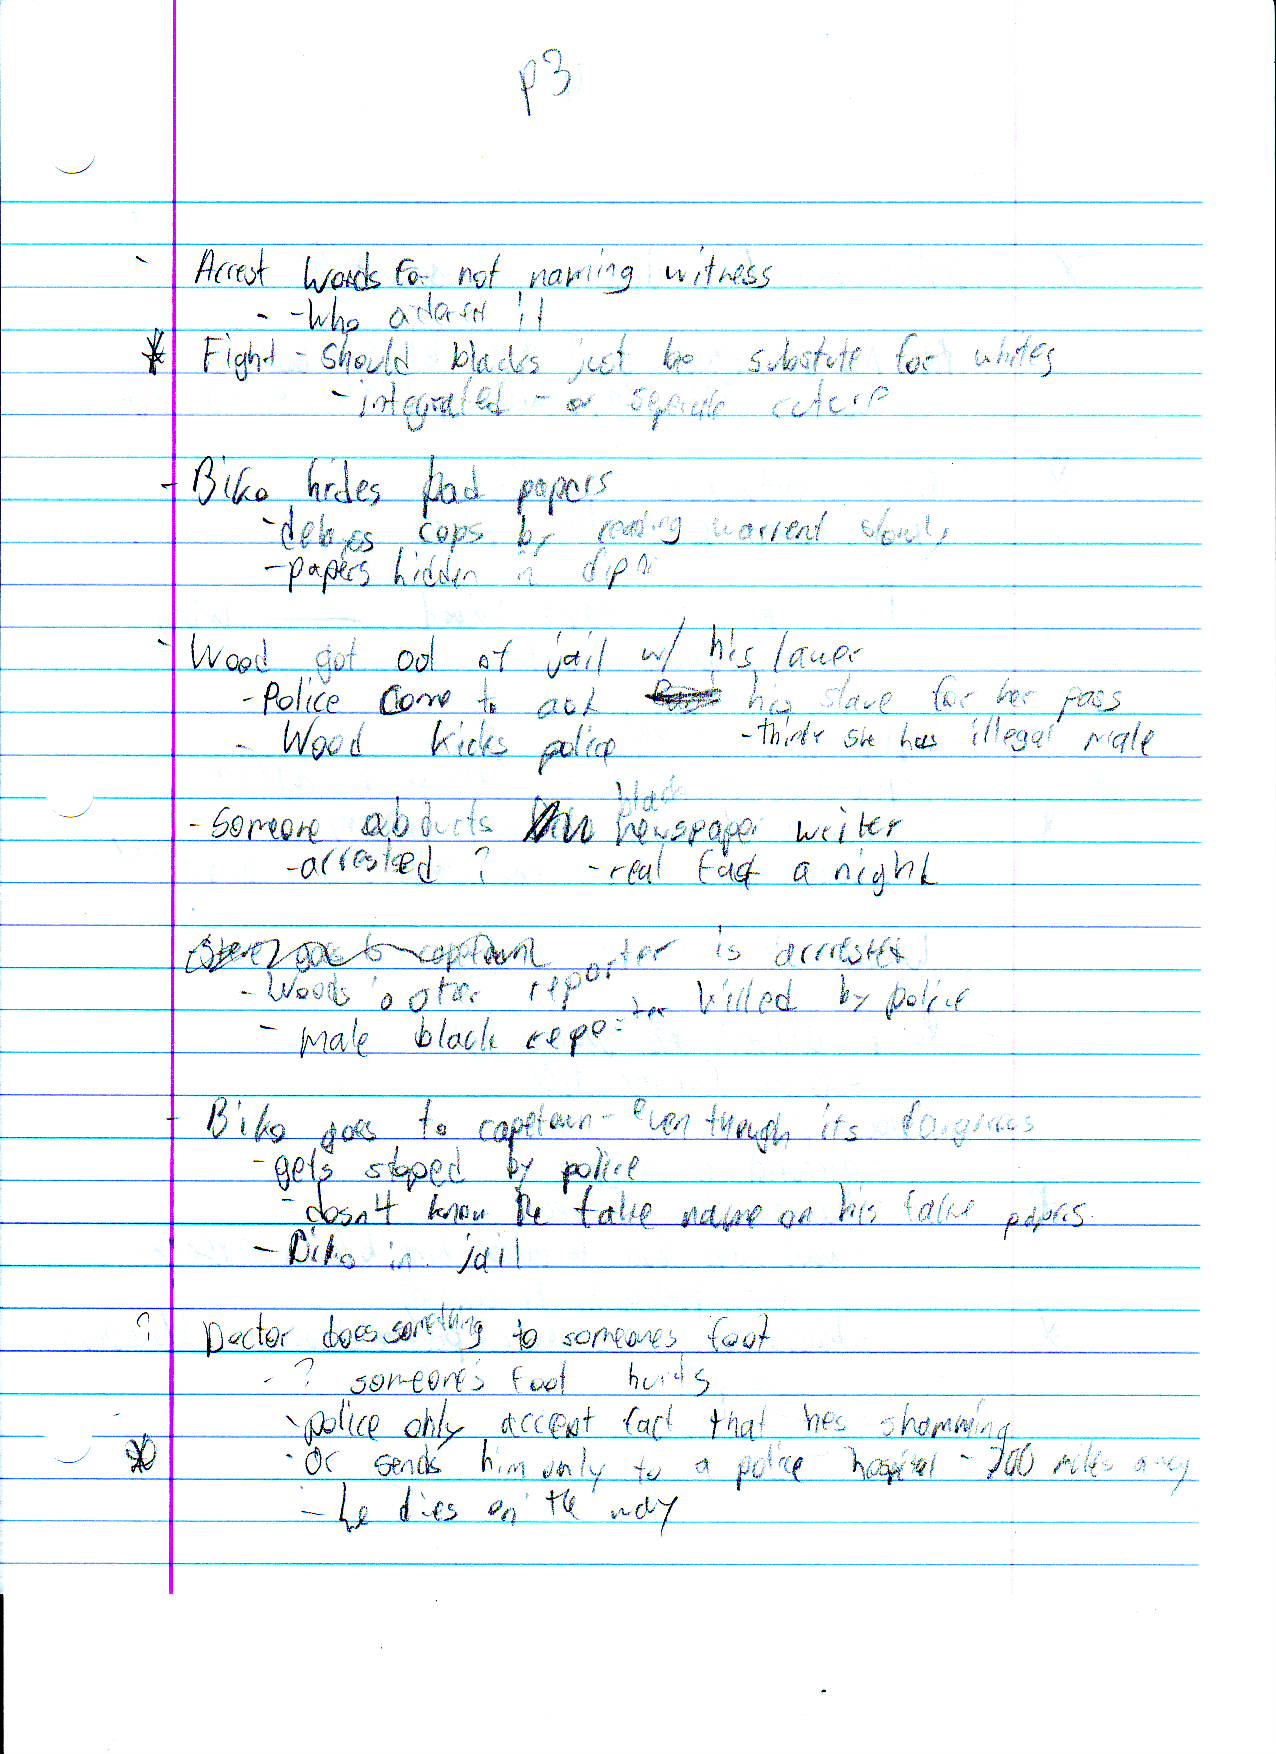 p3
- Arrest Woods for not naming witness
- - Who
* Fight - Should blacks just be substute for whites
- integrated - or seperate
- Biko hides bad papers
- delayes cops by reading warrent slowly
- papers hidden in
- Wood got out of jail w/ his
- Police come to ask his slave for her pass
- Wood kicks police - thinks she has illegal male
- Someone abducts black newspaper writer
- arrested ? - real fact a night
reporter is arrested
- Woods's other reporter killed by police
- male black reporter
- Biko goes to capetown - even though its
- gets stoped by police
- dosn't know the fake name on his fake papers.
- Biko in jail
? Doctor does something to someones foot
- ? someone's foot
- police only accept fact that hes shamming
* - Or sends him only to a police hospital - 700 miles away
- he dies on the way